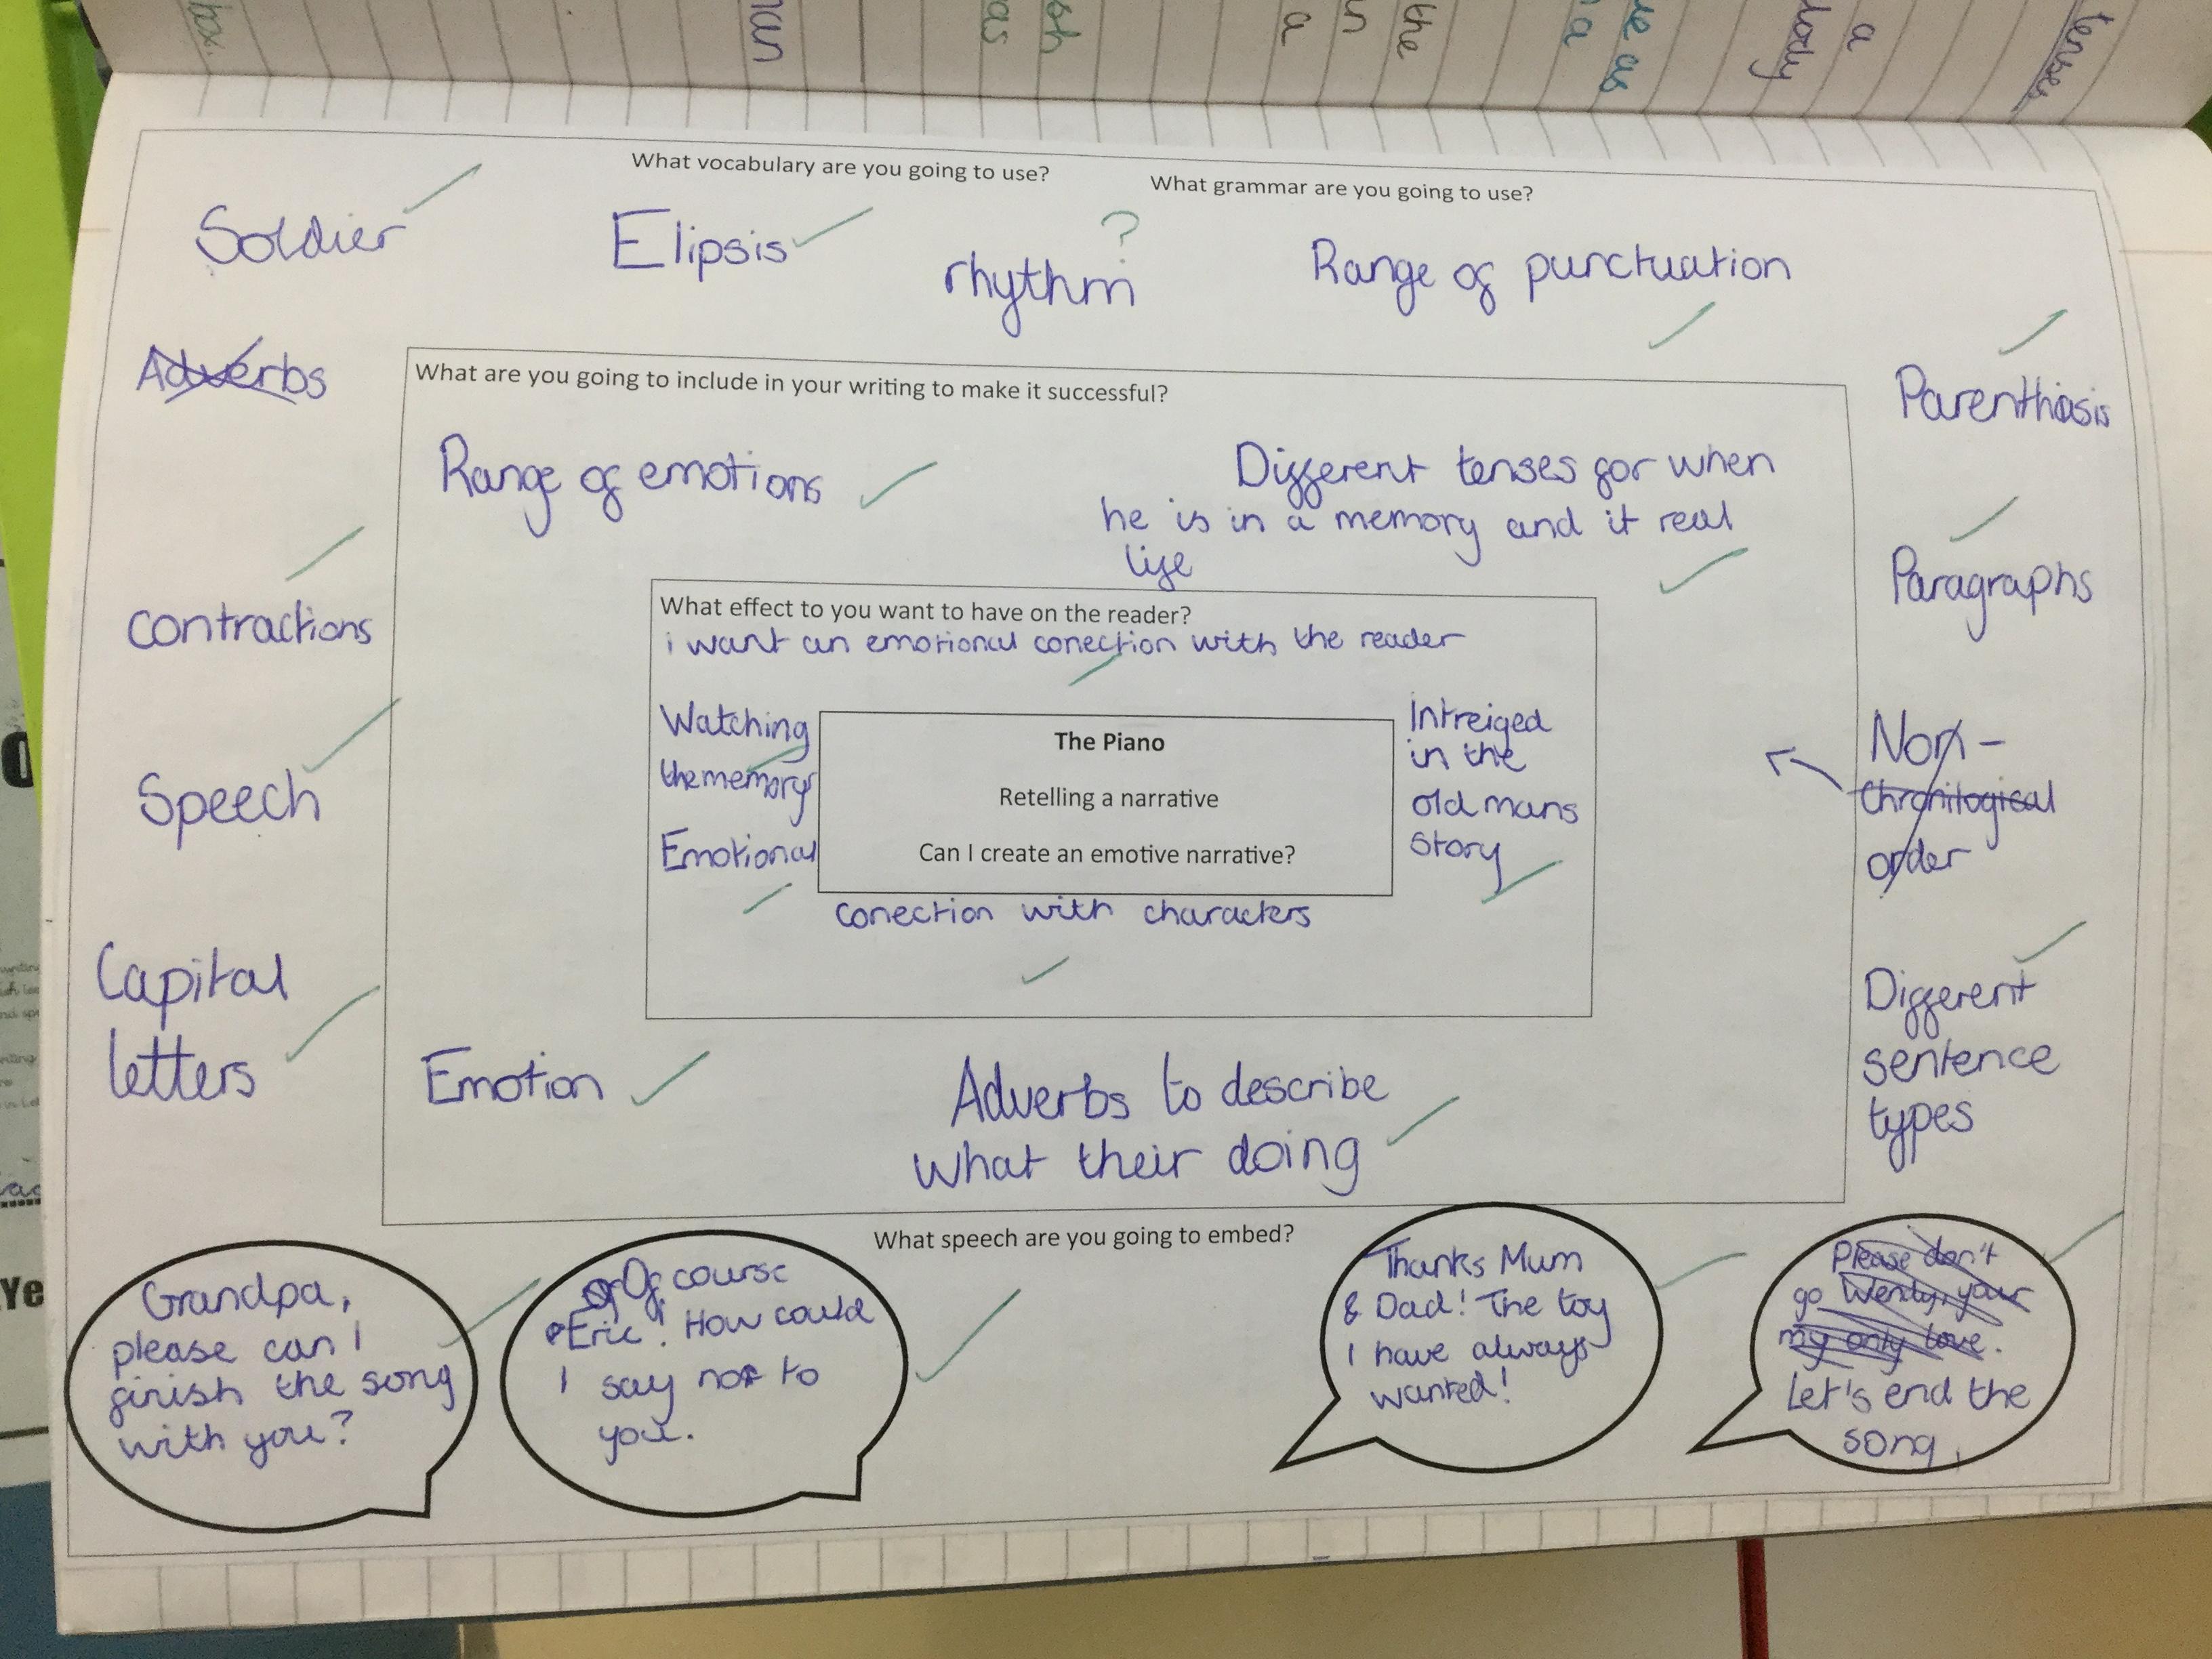 box.
man
as
oh
a
in
the
a
me as
lady
a
tenses
What vocabulary are you going to use?
What grammar are you going to use?
Soldier
Elipsis
?
rhythm
Range of punctuation
Adverbs
Parenthisis
What are you going to include in your writing to make it successful?
Range of emotions
Different tenses for when
he is in a memory and it real
life
contractions
Paragraphs
What effect to you want to have on the reader?
i want an emotional conection with the reader
Watching
the memory
Emotional
The Piano
Retelling a narrative
Can I create an emotive narrative?
Intreiged
in the
old mans
story
conection with characters
Speech
Non-
Chronilogical
order
Capital
letters
Different
sentence
types
Emotion
Adverbs to describe
what their doing
What speech are you going to embed?
Grandpa,
please can I
finish the song
with you?
Of course
Eric! How could
I say not to
you.
Thanks Mum
& Dad! The toy
I have always
wanted!
Please don't
go Wendy, your
my only love.
Let's end the
song,
Ye